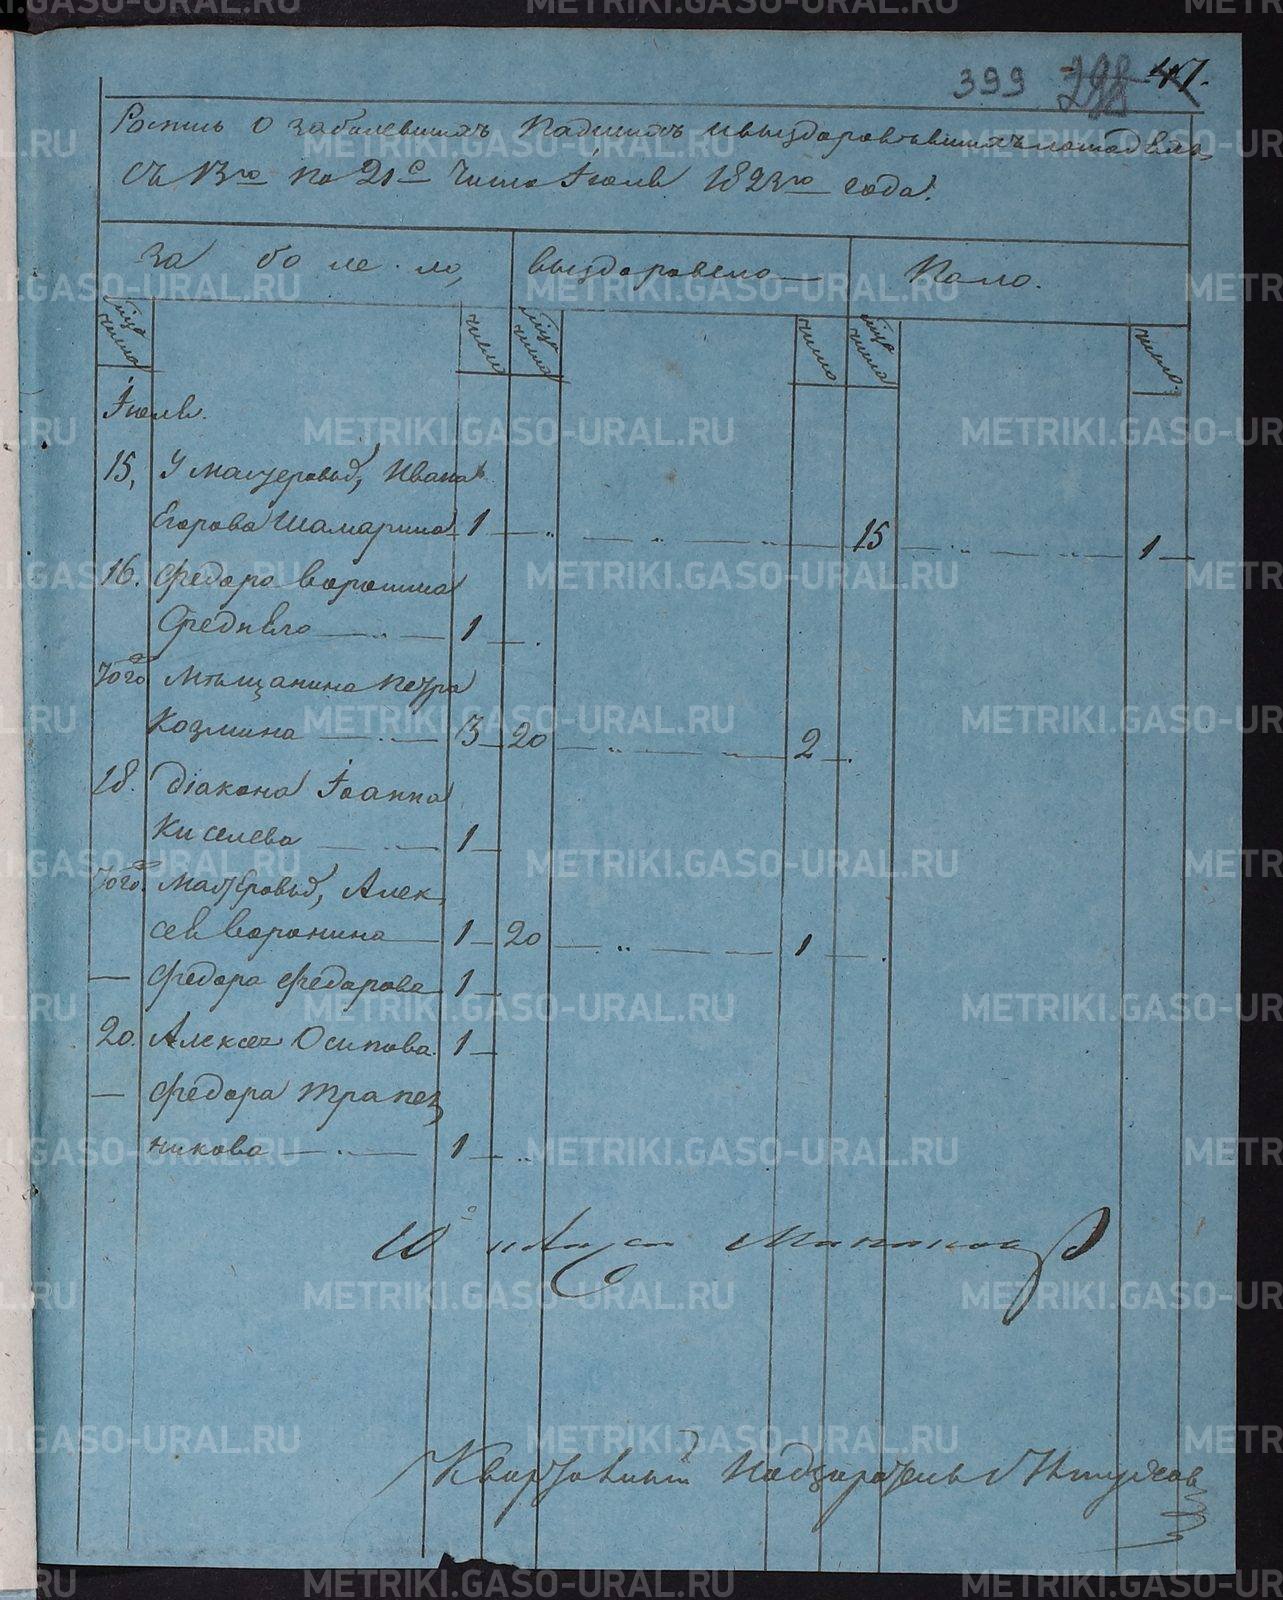 399 298 47.
Роспись о заболевшихъ падшихъ ивыздоровѣвшихъ лошадѣяхъ,
съ 13го по 21е число Іюля 1823го года.
за бо ле ло, выздоровело Пало.
мца число число мца число число мца число число
Іюля.
15, У мастеровыхъ, Ивана
Егорова Шамарина 1 15 1
16. Федора воронина
Среднѣго 1
Того Мѣщанина Петра
Козмина 3 20 2
18. Діакона Іоанна
Киселева 1
Того. Мастеровыхъ, Алек
сея воронина 1 20 1
Федора Федорова 1
20. Алексея Осипова. 1
Федора Трапез
никова 1
Квартальный Надзиратель
METRIKI.GASO-URAL.RU